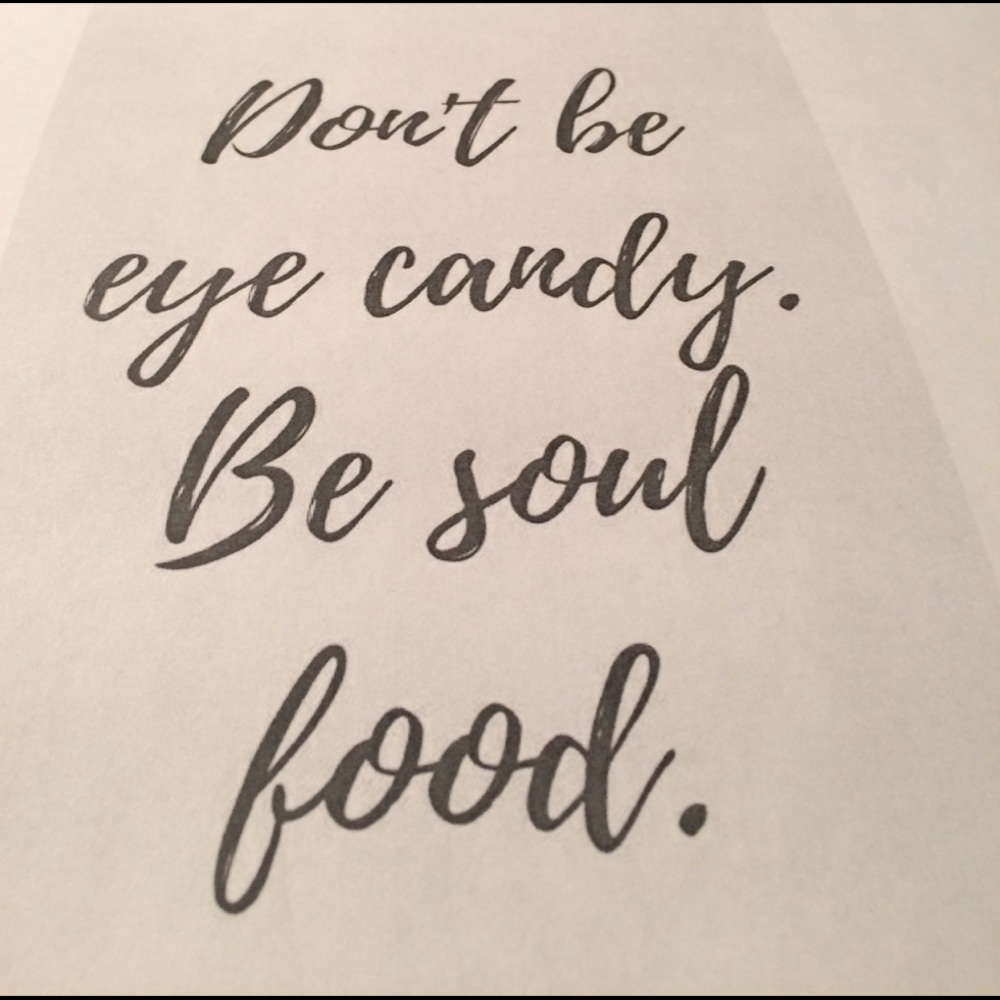 Don't be
eye candy.
Be soul
food.